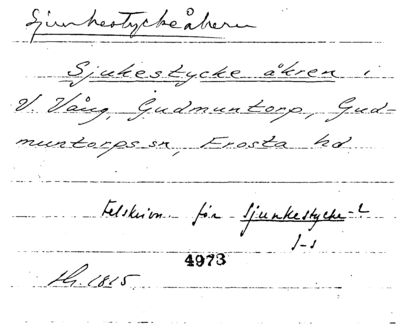 Sjunkestyckeåkern
Sjukestycke åkren i
V. Vång, Gudmuntorp, Gud-
muntorps sn, Frosta hd
Felskrivn. för Sjunkestycke-?
J-s
4973
1815.